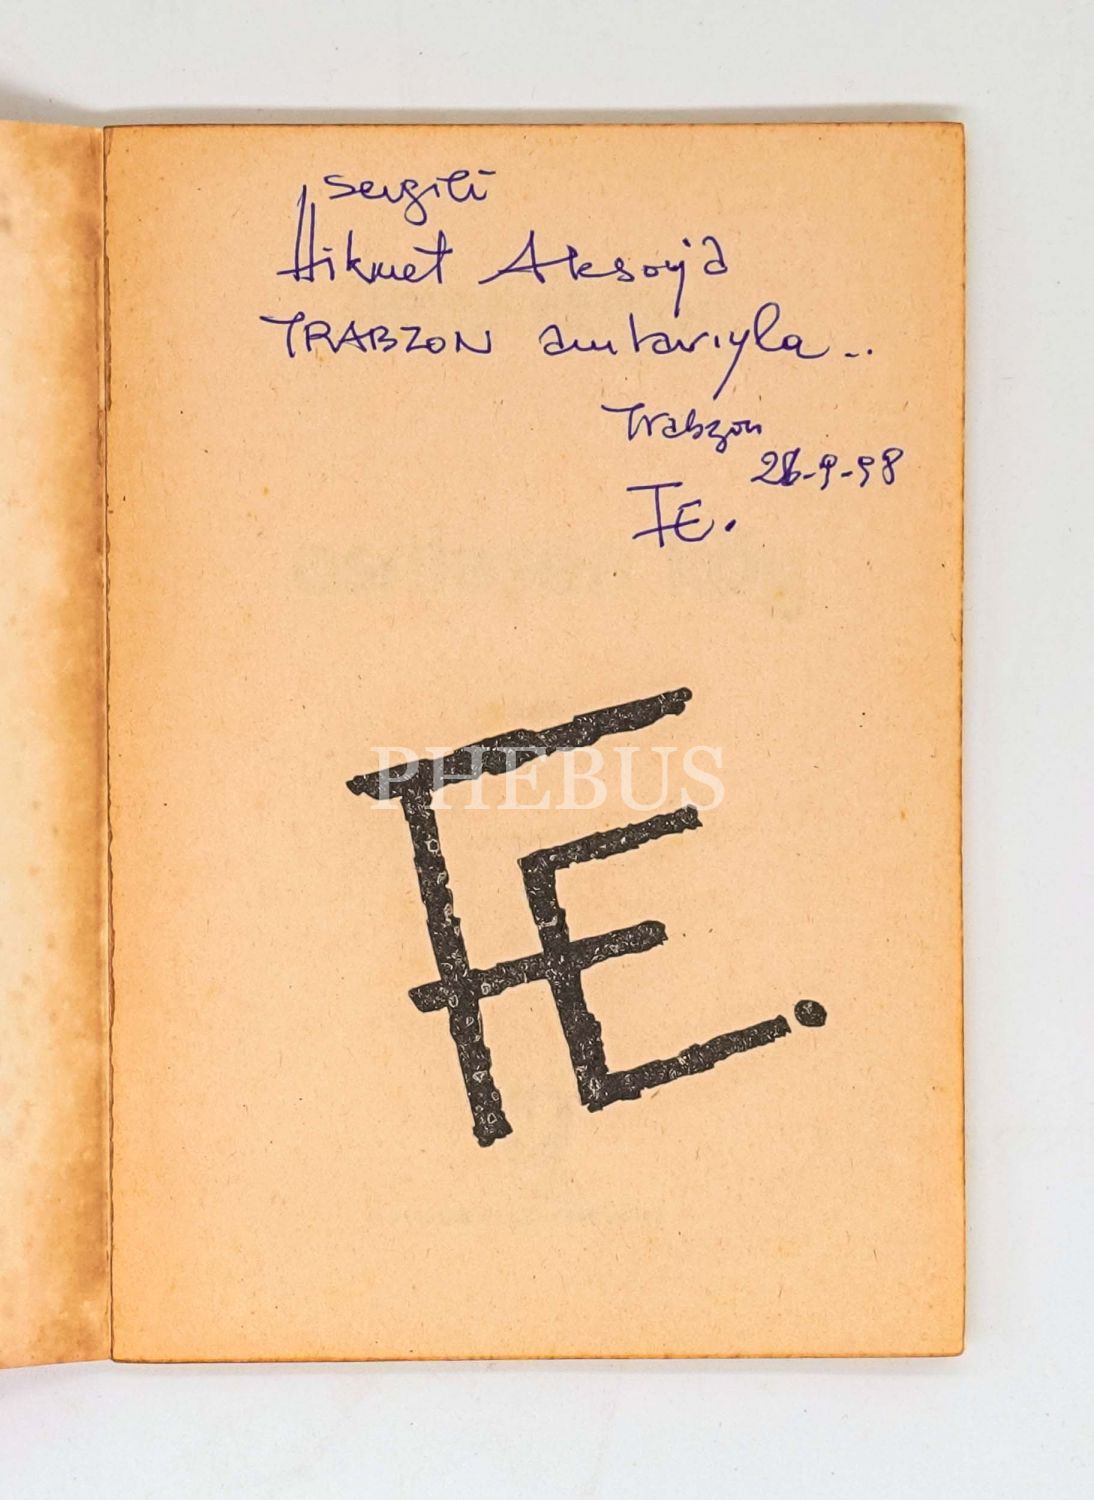 Sevgili
Hikmet Aksoy'a
TRABZON anılarıyla..
Trabzon
-9-98
FE.
PHEBUS
FE.